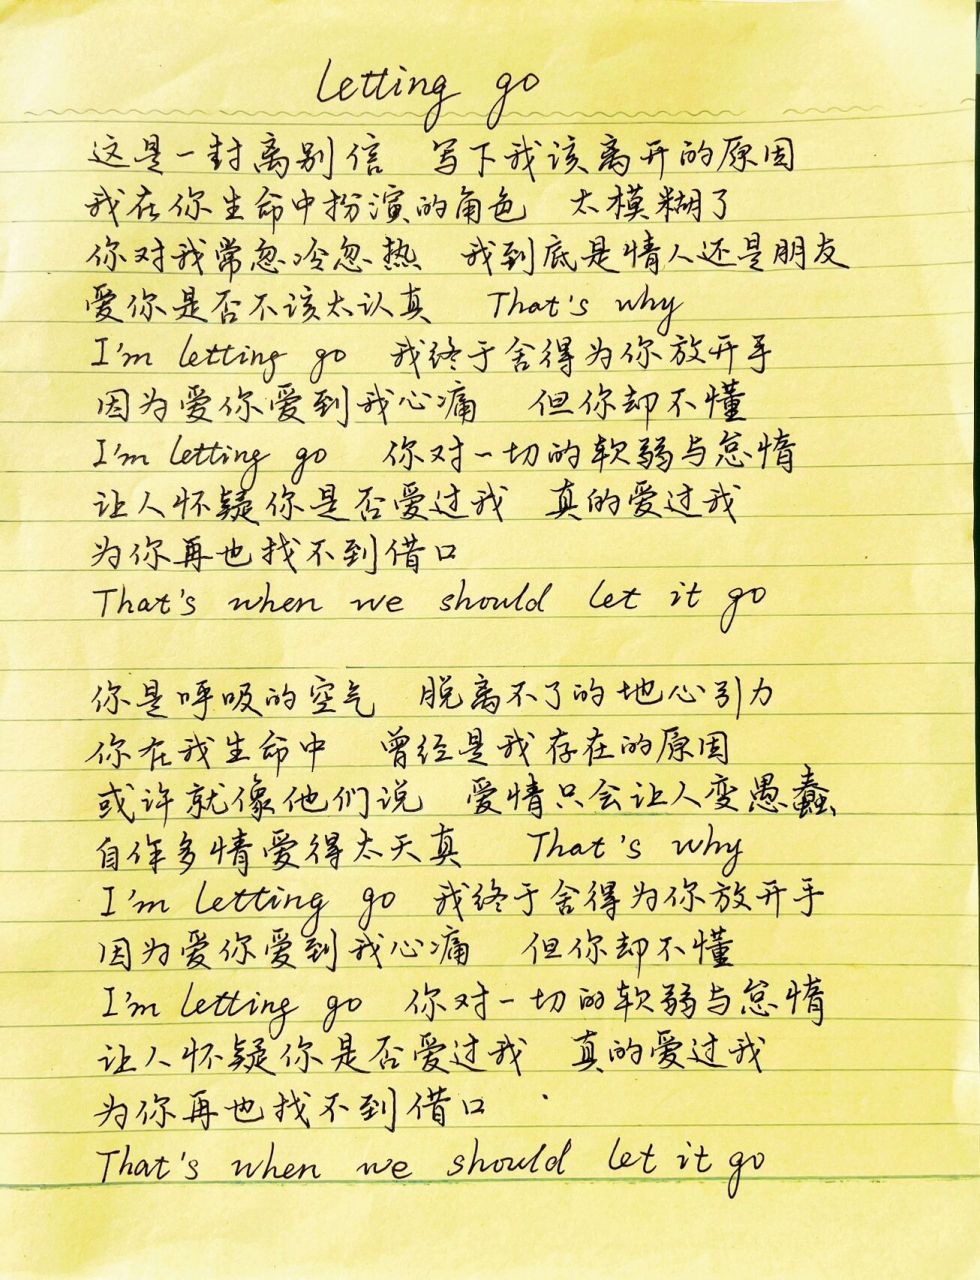 Letting go
这是一封离别信 写下我该离开的原因
我在你生命中扮演的角色 太模糊了
你对我常忽冷忽热 我到底是情人还是朋友
爱你是否不该太认真 That's why
I'm letting go 我终于舍得为你放开手
因为爱你爱到我心痛 但你却不懂
I'm letting go 你对一切的软弱与怠惰
让人怀疑你是否爱过我 真的爱过我
为你再也找不到借口
That's when we should let it go
你是呼吸的空气 脱离不了的地心引力
你在我生命中 曾经是我存在的原因
或许就像他们说 爱情只会让人变愚蠢
自作多情爱得太天真 That's why
I'm letting go 我终于舍得为你放开手
因为爱你爱到我心痛 但你却不懂
I'm letting go 你对一切的软弱与怠惰
让人怀疑你是否爱过我 真的爱过我
为你再也找不到借口
That's when we should let it go